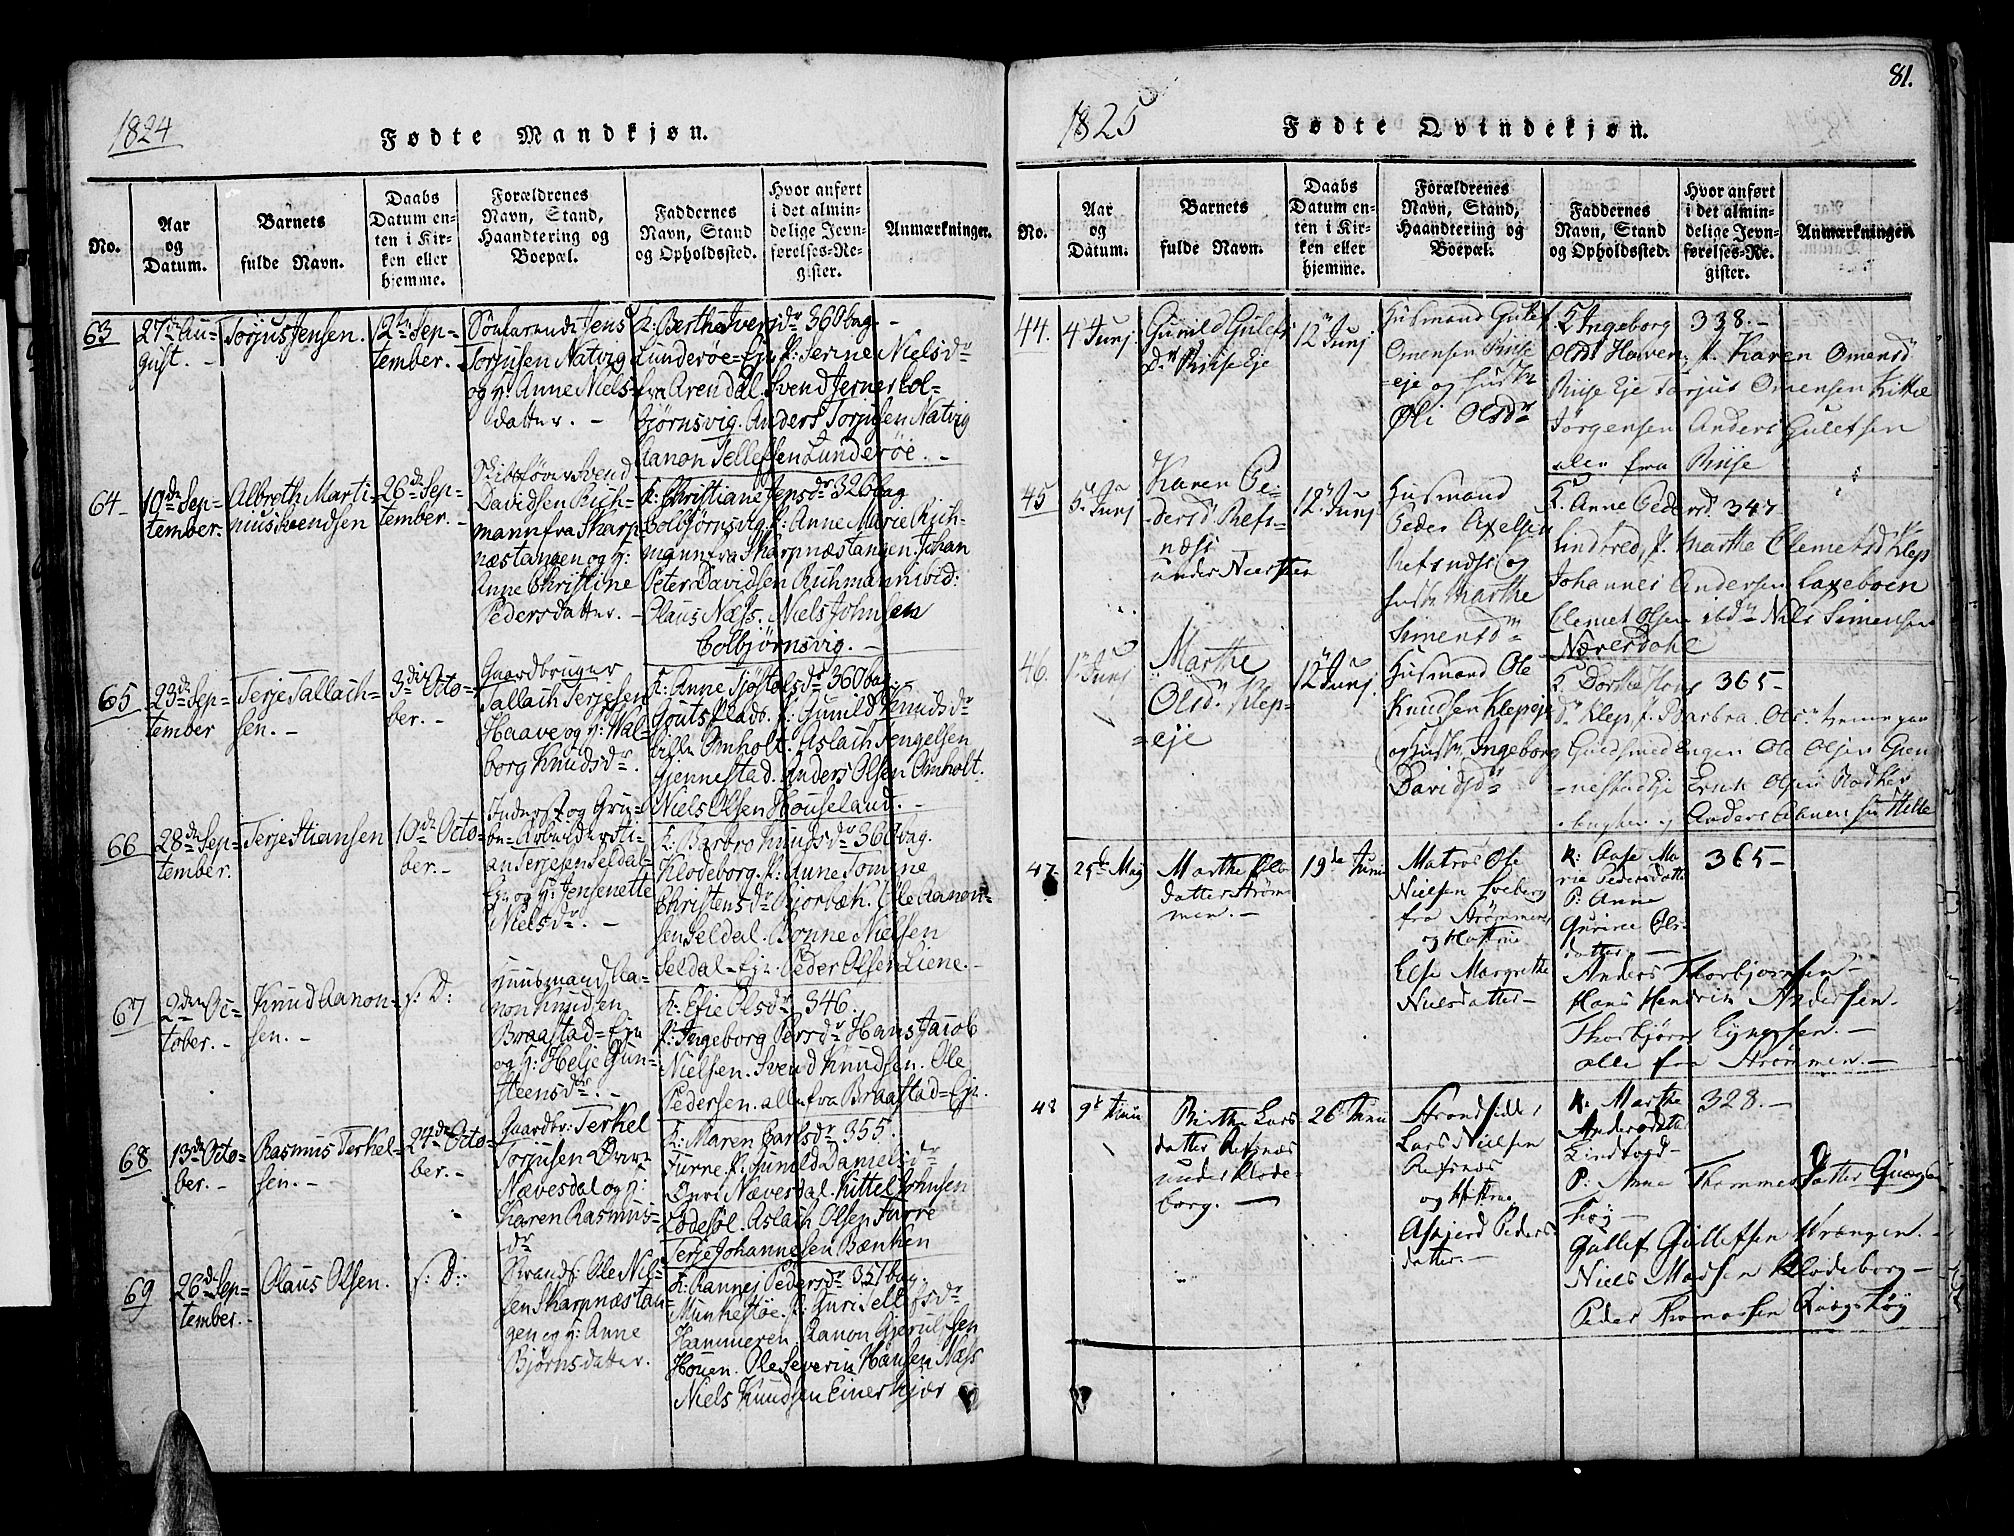 1824
Fødte Mandkjøn.
No.
Aar
og
Datum.
Barnets
fulde Navn.
Daabs
Datum en-
ten i Kir-
ken eller
hjemme.
Forældrenes
Navn, Stand,
Haandtering og
Boepæl.
Faddernes
Navn, Stand
og Opholdssted.
Hvor anført
i det almin-
delige Jevn-
førelses-Re-
gister.
Anmærkninger.
63
27de Au-
gust. -
Torjus Jensen.
12te Sep-
tember. -
Jens
Torjusen Natvig
og H: Anne Niels-
datter. -
K: Berthe Iversdr 360 bag. -
Lunderøe=Eje P: Serine Nielsdr
fra Arendal. Svend Jerner Col-
bjørnsvig. Anders Torjusen Natvig
Aanon Tellefsen Lunderøe. -
64
10de Sep-
tember.
Albreth Marti-
nus Svendsen
26de Sep-
tember. -
Svend
Davidsen Rich-
mann fra Skarp-
næstangen og H:
Anne Christine
Pedersdatter. -
K: Christiane Jensdr 326 bag
Colbjørnsvig. P: Anne Marie Rich-
mann fra Skarpnæstangen. Johan
Peter Davidsen Richmann ibid:
Claus Næss. Niels Johnsen
Colbjørnsvig. -
65
23de Sep-
tember
Terje Tallach-
sen. -
3die Octo-
ber. -
Gaardbruger
Tallach Terjesen
Haave og H: Wal-
borg Knudsdr. -
K: Anne Tjøstolsdr 360 bag. -
Gouts Plads. P: Gunild Knudsdr
lille Omholt. Aslach Tengelsen
Gjennestad. Anders Olsen Omholt.
Niels Olsen Houseland. -
66
28de Sep-
tember.
Terje Stiansen
10de Octo-
ber. -
Inderst og Gru-
be=Arbeider Sti-
an Terjesen Seldal-
Eje og H: Jensenette
Nielsdr. -
K: Barbro Knudsdr 360 bag.
Klodeborg. P: Anne Tomine
Christensdr Bjorbæk. Ole Aanon-
sen Seldal. Bonne Nielsen
Seldal=Eje. Peder Olsen Liene. -
67
2den Oc-
tober. -
Knud Aanon-
sen. -
s: D:
Huusmand Aa-
non Knudsen
Braastad=Eje
og H: Helje Gun-
steensdr. -
K: Efie Olsdr 346.
P: Ingeborg Persdr Hans Jacob
Nielsen. Svend Knudsen. Ole
Pedersen. alle fra Braastad=Eje.
68
13de Octo-
ber. -
Rasmus Terkel-
sen. -
24de Octo-
ber. -
Gaardbr: Terkel
Torjusen Øvre
Nævesdal og H:
Karen Rasmus-
dr
K: Maren Carlsdr 355.
Furre. P: Gunild Danielsdr
Øvre Nævesdal. Kittel Johnsen
Lodesøl. Aslach Olsen Furre
Terje Johannesen Bænken
69
26de Sep-
tember. -
Claus Olsen.
s: D:
Strands: Ole Niel-
sen Skarpnæstan-
gen og H: Anne
Bjørnsdatter.
K: Rannej Pedersdr 351 bag.
Munkestøe. P: Guri Tellefsdr
Hammeren. Aanon Gjerulfsen
Houen. Ole Severin Hansen Næss
Niels Knudsen Einerkjær
81.
1825
Fødte Qvindekjøn.
No.
Aar
og
Datum.
Barnets
fulde Navn.
Daabs
Datum en-
ten i Kir-
ken eller
hjemme.
Forældrenes
Navn, Stand,
Haandtering og
Boepæl.
Faddernes
Navn, Stand
og Opholdssted.
Hvor anført
i det almin-
delige Jevn-
førelses-Re-
gister.
Anmærkninger.
44.
4 Junj.
Gunild Gulefs
dr Riise Eje
12 Junj
Husmand Gulef
Omensen Riise
=eje og Hustr
Øli Olsdr
K Ingeborg 338. -
Olsdr Haven. P. Karen Omensd
Riise Eje Tarjus Omensen Kittel
Jørgensen Anders Gulefsen
alle fra Riise
45
5 Junj
Karen Pe-
dersd Refs-
næs
under Neersteen
12 Junj
Husmand
Peder Axelsen
Refsnæs og
Hustr Marthe
Simensdr
K. Anne Pedersd 347
P. Marthe Clemetsd Klep
Johannes Andersen Laxeboen
Clemet Olsen ibdm Nils Simensen
Næverdahl
46.
1 Junj
Marthe
Olsd Klep-
=eje
12 Junj
Husmand Ole
Knudsen Klepeje
og Hustr Ingeborg
Davidsdr
K Dorthe 365 -
dr Klep P. Barbra Olsdr
Engen Ole Olsen Gjen-
nestad Eje Erik Olsen
Anders
47
25de Maj
Marthe Ols
datter Strøm-
men. -
19de Junii
Matros Ole
Nielsen
fra Strømmen
og Hustrue
Else Margrethe
Nielsdatter -
K: Aase Ma- 365 -
rie Pedersdatter
P: Anne
Gurine Ols-
datter -
Anders Thorbjørnsen -
Hans Hendrik Andersen.
Thorbjørn Eynersen. -
alle fra Strømmen. -
48
9de Junii
Birthe Lars
datter Refsnæs
under Klode-
borg. -
26 Junii
Strandsidder
Lars Nielsen
Refsnæs
og Hustrue
Asbjerd Peders
datter. -
K: Marthe 328. -
Andersdatter
P. Anne Thommesdatter Qvægs-
høy -
Gullef Gullefsen Wrængen. -
Niels Madsen Klodeborg -
Peder Thomassen Qvægshøy